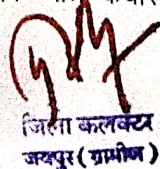 जिला कलक्टर
जयपुर (ग्रामीण)